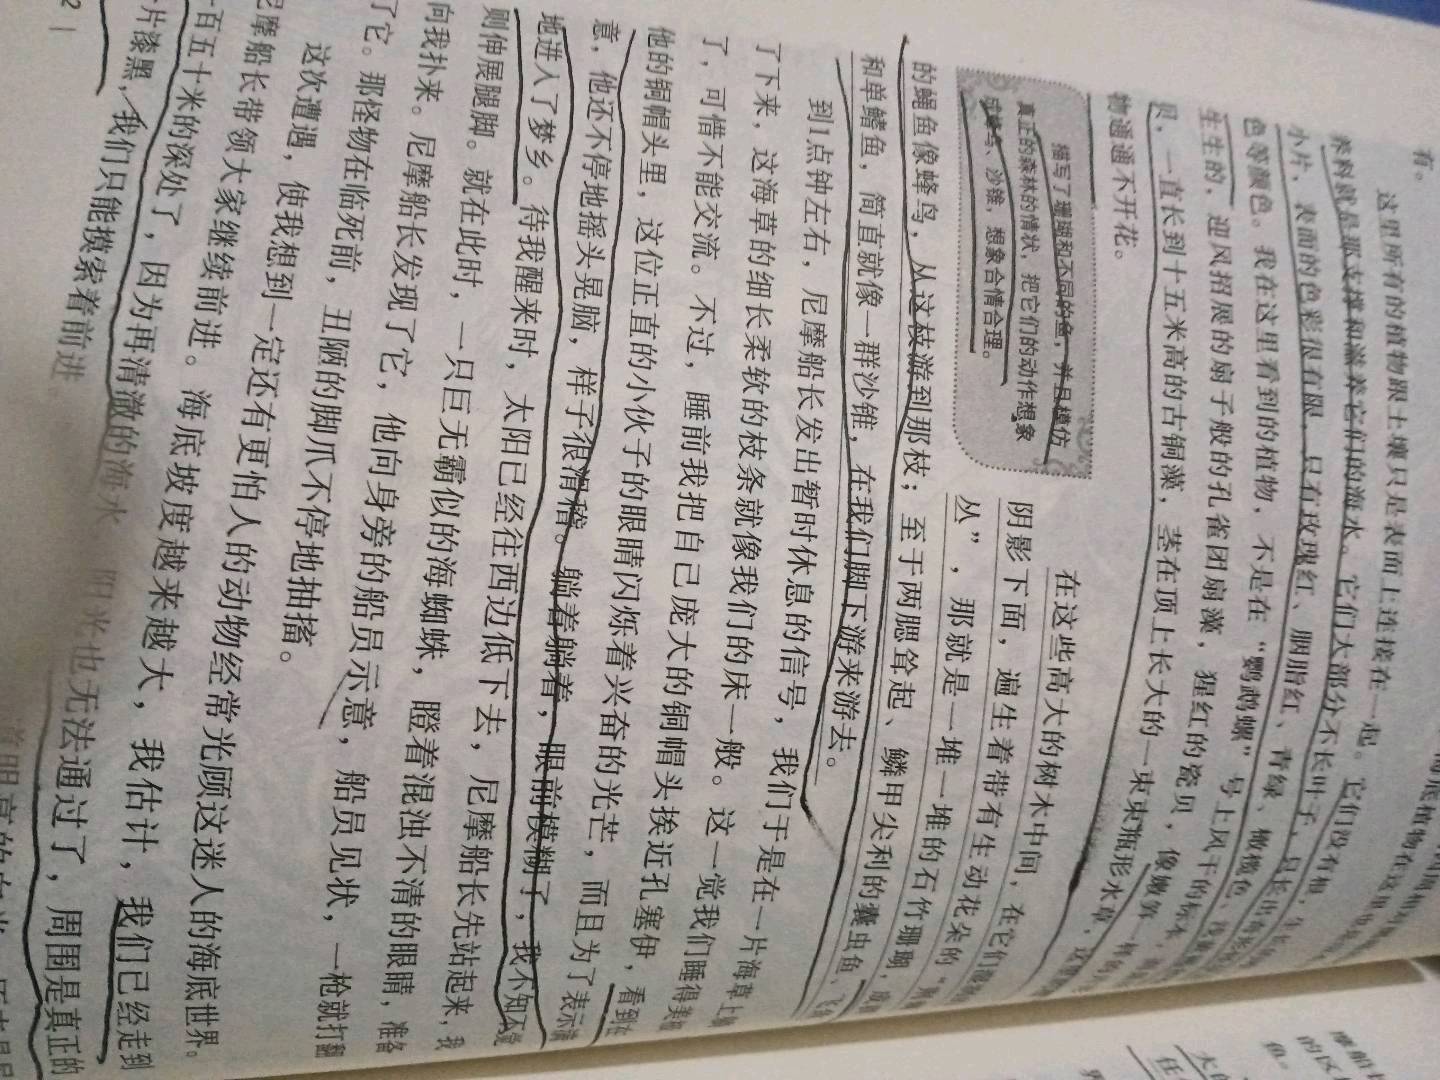 有。
这里所有的植物跟土壤只是表面上连接在一起。它们没有根，
养料就是那支撑和滋养它们的海水。它们大部分不长叶子，只长出
小片，表面的色彩很有限，只有玫瑰红、胭脂红、青绿、橄榄色、
色等颜色。我在这里看到的植物，不是在“鹦鹉螺”号上风干的标本，
生生的，迎风招展的扇子般的孔雀团扇藻，猩红的瓷贝，像
贝，一直长到十五米高的古铜藻，茎在顶上长大的一束束瓶形水草，
物通通不开花。
描写了珊瑚和不同的鱼，并且模仿
真正的森林的情状，把它们的动作想象
成蜂鸟、沙锥，想象合情合理。
在这些高大的树木中间，在它们
阴影下面，遍生着带有生动花朵的
丛”，那就是一堆一堆的石竹珊瑚，
的蝇鱼像蜂鸟，从这枝游到那枝；至于两腮耸起、鳞甲尖利的囊虫鱼、飞
和单鳍鱼，简直就像一群沙锥，在我们脚下游来游去。
到1点钟左右，尼摩船长发出暂时休息的信号，我们于是在一片海草上
了下来，这海草的细长柔软的枝条就像我们的床一般。这一觉我们睡得美
了，可惜不能交流。不过，睡前我把自己庞大的铜帽头挨近孔塞伊，看到在
他的铜帽头里，这位正直的小伙子的眼睛闪烁着兴奋的光芒，而且为了表示满
意，他还不停地摇头晃脑，样子很滑稽。躺着躺着，眼前模糊了，我不知不觉
地进入了梦乡。待我醒来时，太阳已经往西边低下去，尼摩船长先站起来，我
则伸展腿脚。就在此时，一只巨无霸似的海蜘蛛，瞪着混浊不清的眼睛，准备
向我扑来。尼摩船长发现了它，他向身旁的船员示意，船员见状，一枪就打翻
了它。那怪物在临死前，丑陋的脚爪不停地抽搐。
这次遭遇，使我想到一定还有更怕人的动物经常光顾这迷人的海底世界。
尼摩船长带领大家继续前进。海底坡度越来越大，我估计，我们已经走到
一百五十米的深处了，因为再清澈的海水 阳光也无法通过了，周围是真正的
片漆黑，我们只能摸索着前进
2